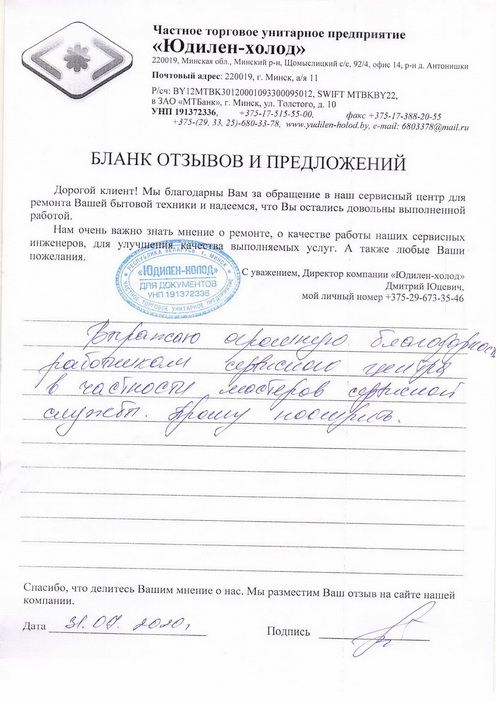 Частное торговое унитарное предприятие
«Юдилен-холод»
220019, Минская обл., Минский р-н, Щомыслицкий с/с, 92/4, офис 14, р-н д. Антонишки
Почтовый адрес: 220019, г. Минск, а/я 11
Р/сч: BY12MTBK30120001093300095012, SWIFT MTBKBY22,
в ЗАО «МТБанк», г. Минск, ул. Толстого, д. 10
УНП 191372336, +375-17-515-55-00, факс +375-17-388-20-55
+375-(29, 33, 25)-680-33-78, www.yudilen-holod.by, e-mail: 6803378@mail.ru
БЛАНК ОТЗЫВОВ И ПРЕДЛОЖЕНИЙ
Дорогой клиент! Мы благодарны Вам за обращение в наш сервисный центр для
ремонта Вашей бытовой техники и надеемся, что Вы остались довольны выполненной
работой.
Нам очень важно знать мнение о ремонте, о качестве работы наших сервисных
инженеров, для улучшения качества выполняемых услуг. А также любые Ваши
пожелания.
С уважением, Директор компании «Юдилен-холод»
Дмитрий Юцевич,
мой личный номер +375-29-673-35-46
РЕСПУБЛИКА БЕЛАРУСЬ, г. МИНСК
«Юдилен-холод»
ДЛЯ ДОКУМЕНТОВ
УНП 191372336
ЧАСТНОЕ ТОРГОВОЕ УНИТАРНОЕ ПРЕДПРИЯТИЕ
Выражаю огромную благодарность
работникам сервисного центра
в частности мастеров сервисной
службы. Прошу поощрить.
Спасибо, что делитесь Вашим мнение о нас. Мы разместим Ваш отзыв на сайте нашей
компании.
Дата 31.07.2020г. Подпись